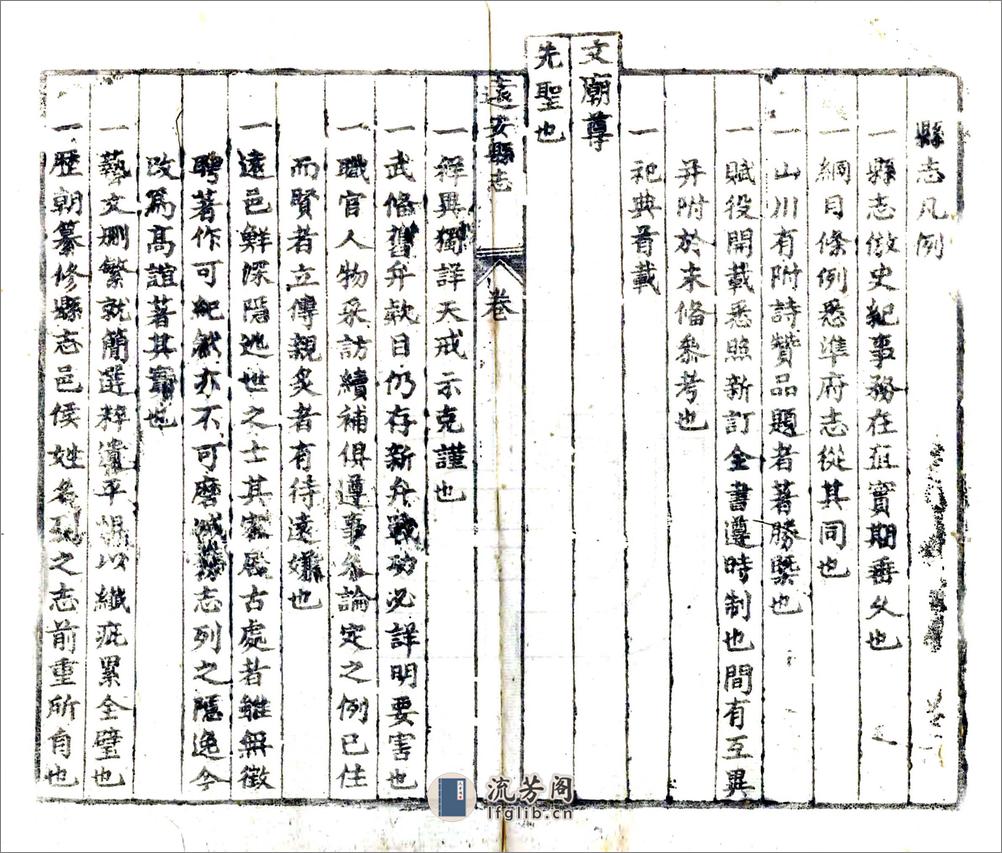 縣志凡例
一縣志倣史紀事務在直實期垂久也
一綱目條例悉準府志從其同也
一山川有附詩贊品題者著勝槩也
一賦役開載悉照新訂全書遵時制也間有互異
并附於末俻叅考也
一祀典首載
文廟尊
先聖也
遠安縣志 卷
一祥異獨詳天戒示克謹也
一武俻舊弁欵目仍存新弁戰功必詳明要害也
一職官人物采訪續補俱遵事久論定之例已住
而賢者立傳親炙者有待遠嫌也
一遠邑鮮深隱逃世之士其家居古處者雖無徵
聘著作可紀然亦不可磨滅舊志列之隱逸今
改爲高誼著其實也
一藝文刪繁就簡選粹遺平惧以纖疵累全璧也
一歷朝纂修縣志邑侯姓名列之志前重所自也
流芳阁
lfglib.cn